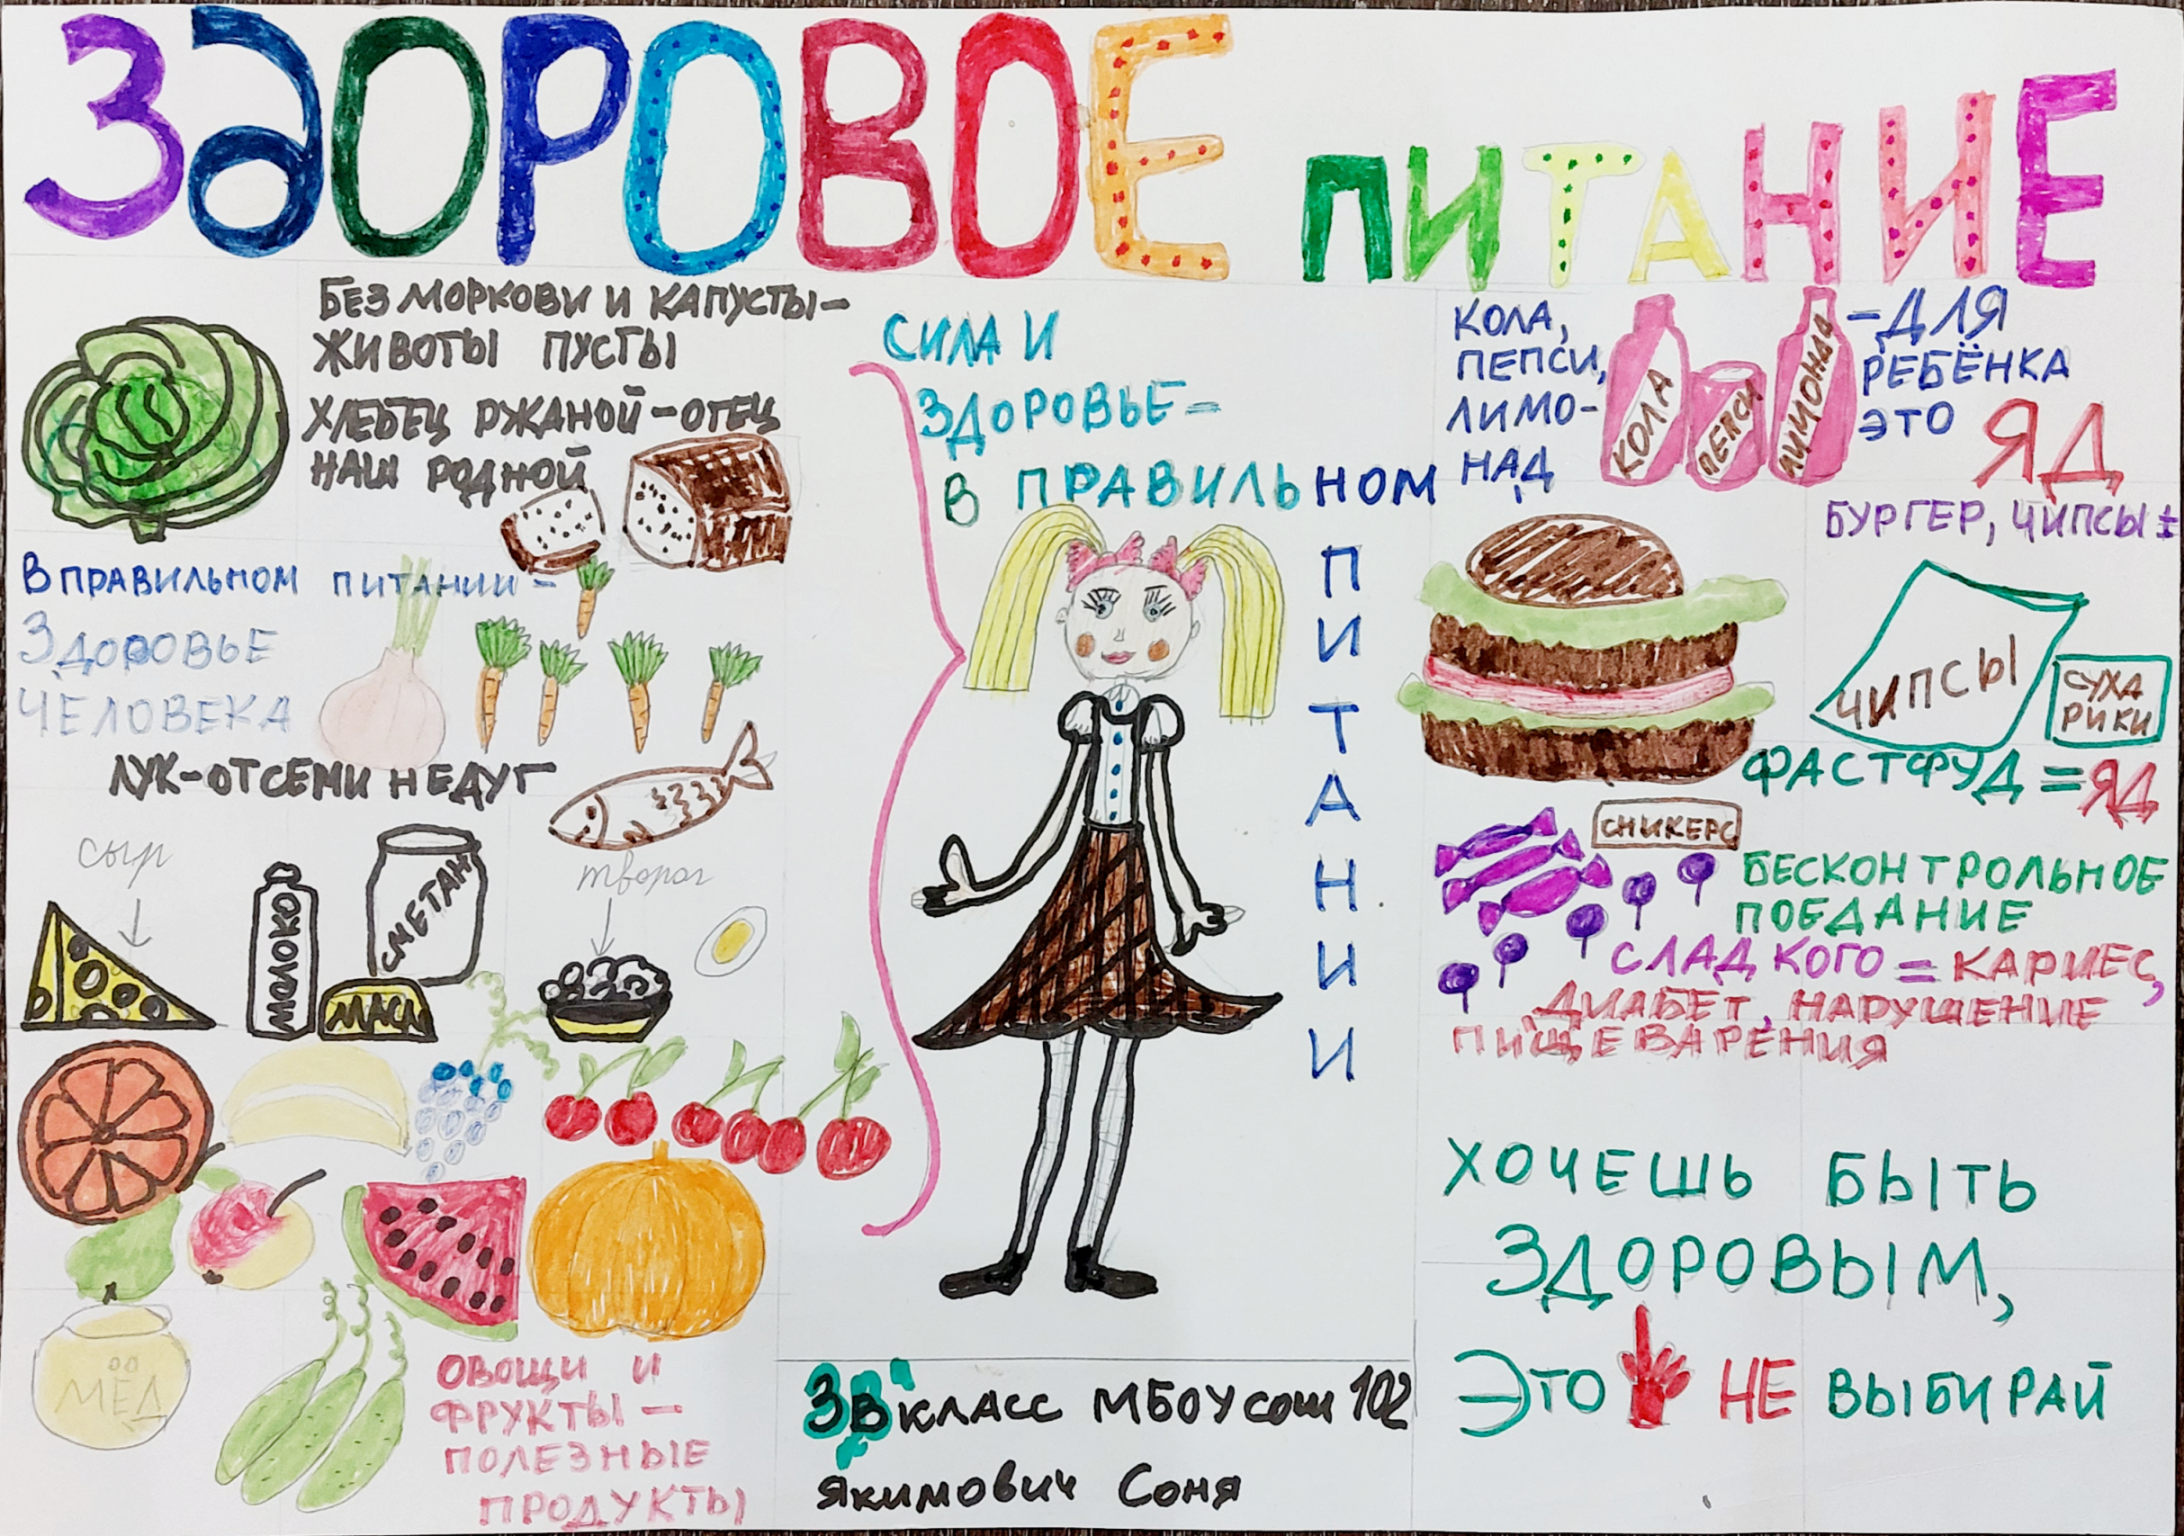 ЗДОРОВОЕ ПИТАНИЕ
БЕЗ МОРКОВИ И КАПУСТЫ-
ЖИВОТЫ ПУСТЫ
ХЛЕБЕЦ РЖАНОЙ-ОТЕЦ
НАШ РОДНОЙ
В ПРАВИЛЬНОМ ПИТАНИИ-
ЗДОРОВЬЕ
ЧЕЛОВЕКА
ЛУК-ОТ СЕМИ НЕДУГ
сыр
МОЛОКО
СМЕТАН
МАСЛ
творог
МЁД
ОВОЩИ И
ФРУКТЫ-
ПОЛЕЗНЫЕ
ПРОДУКТЫ
СИЛА И
ЗДОРОВЬЕ-
В ПРАВИЛЬНОМ
ПИТАНИИ
3"В" КЛАСС МБОУ сош 102
Якимович Соня
КОЛА,
ПЕПСИ,
ЛИМО-
НАД
КОЛА
ПЕПСИ
ЛИМОНАД
-ДЛЯ
РЕБЁНКА
ЭТО ЯД
БУРГЕР, ЧИПСЫ ±
ЧИПСЫ
СУХА
РИКИ
ФАСТФУД = ЯД
СНИКЕРС
БЕСКОНТРОЛЬНОЕ
ПОЕДАНИЕ
СЛАДКОГО = КАРИЕС,
ДИАБЕТ, НАРУШЕНИЕ
ПИЩЕВАРЕНИЯ
ХОЧЕШЬ БЫТЬ
ЗДОРОВЫМ,
ЭТО НЕ ВЫБИРАЙ